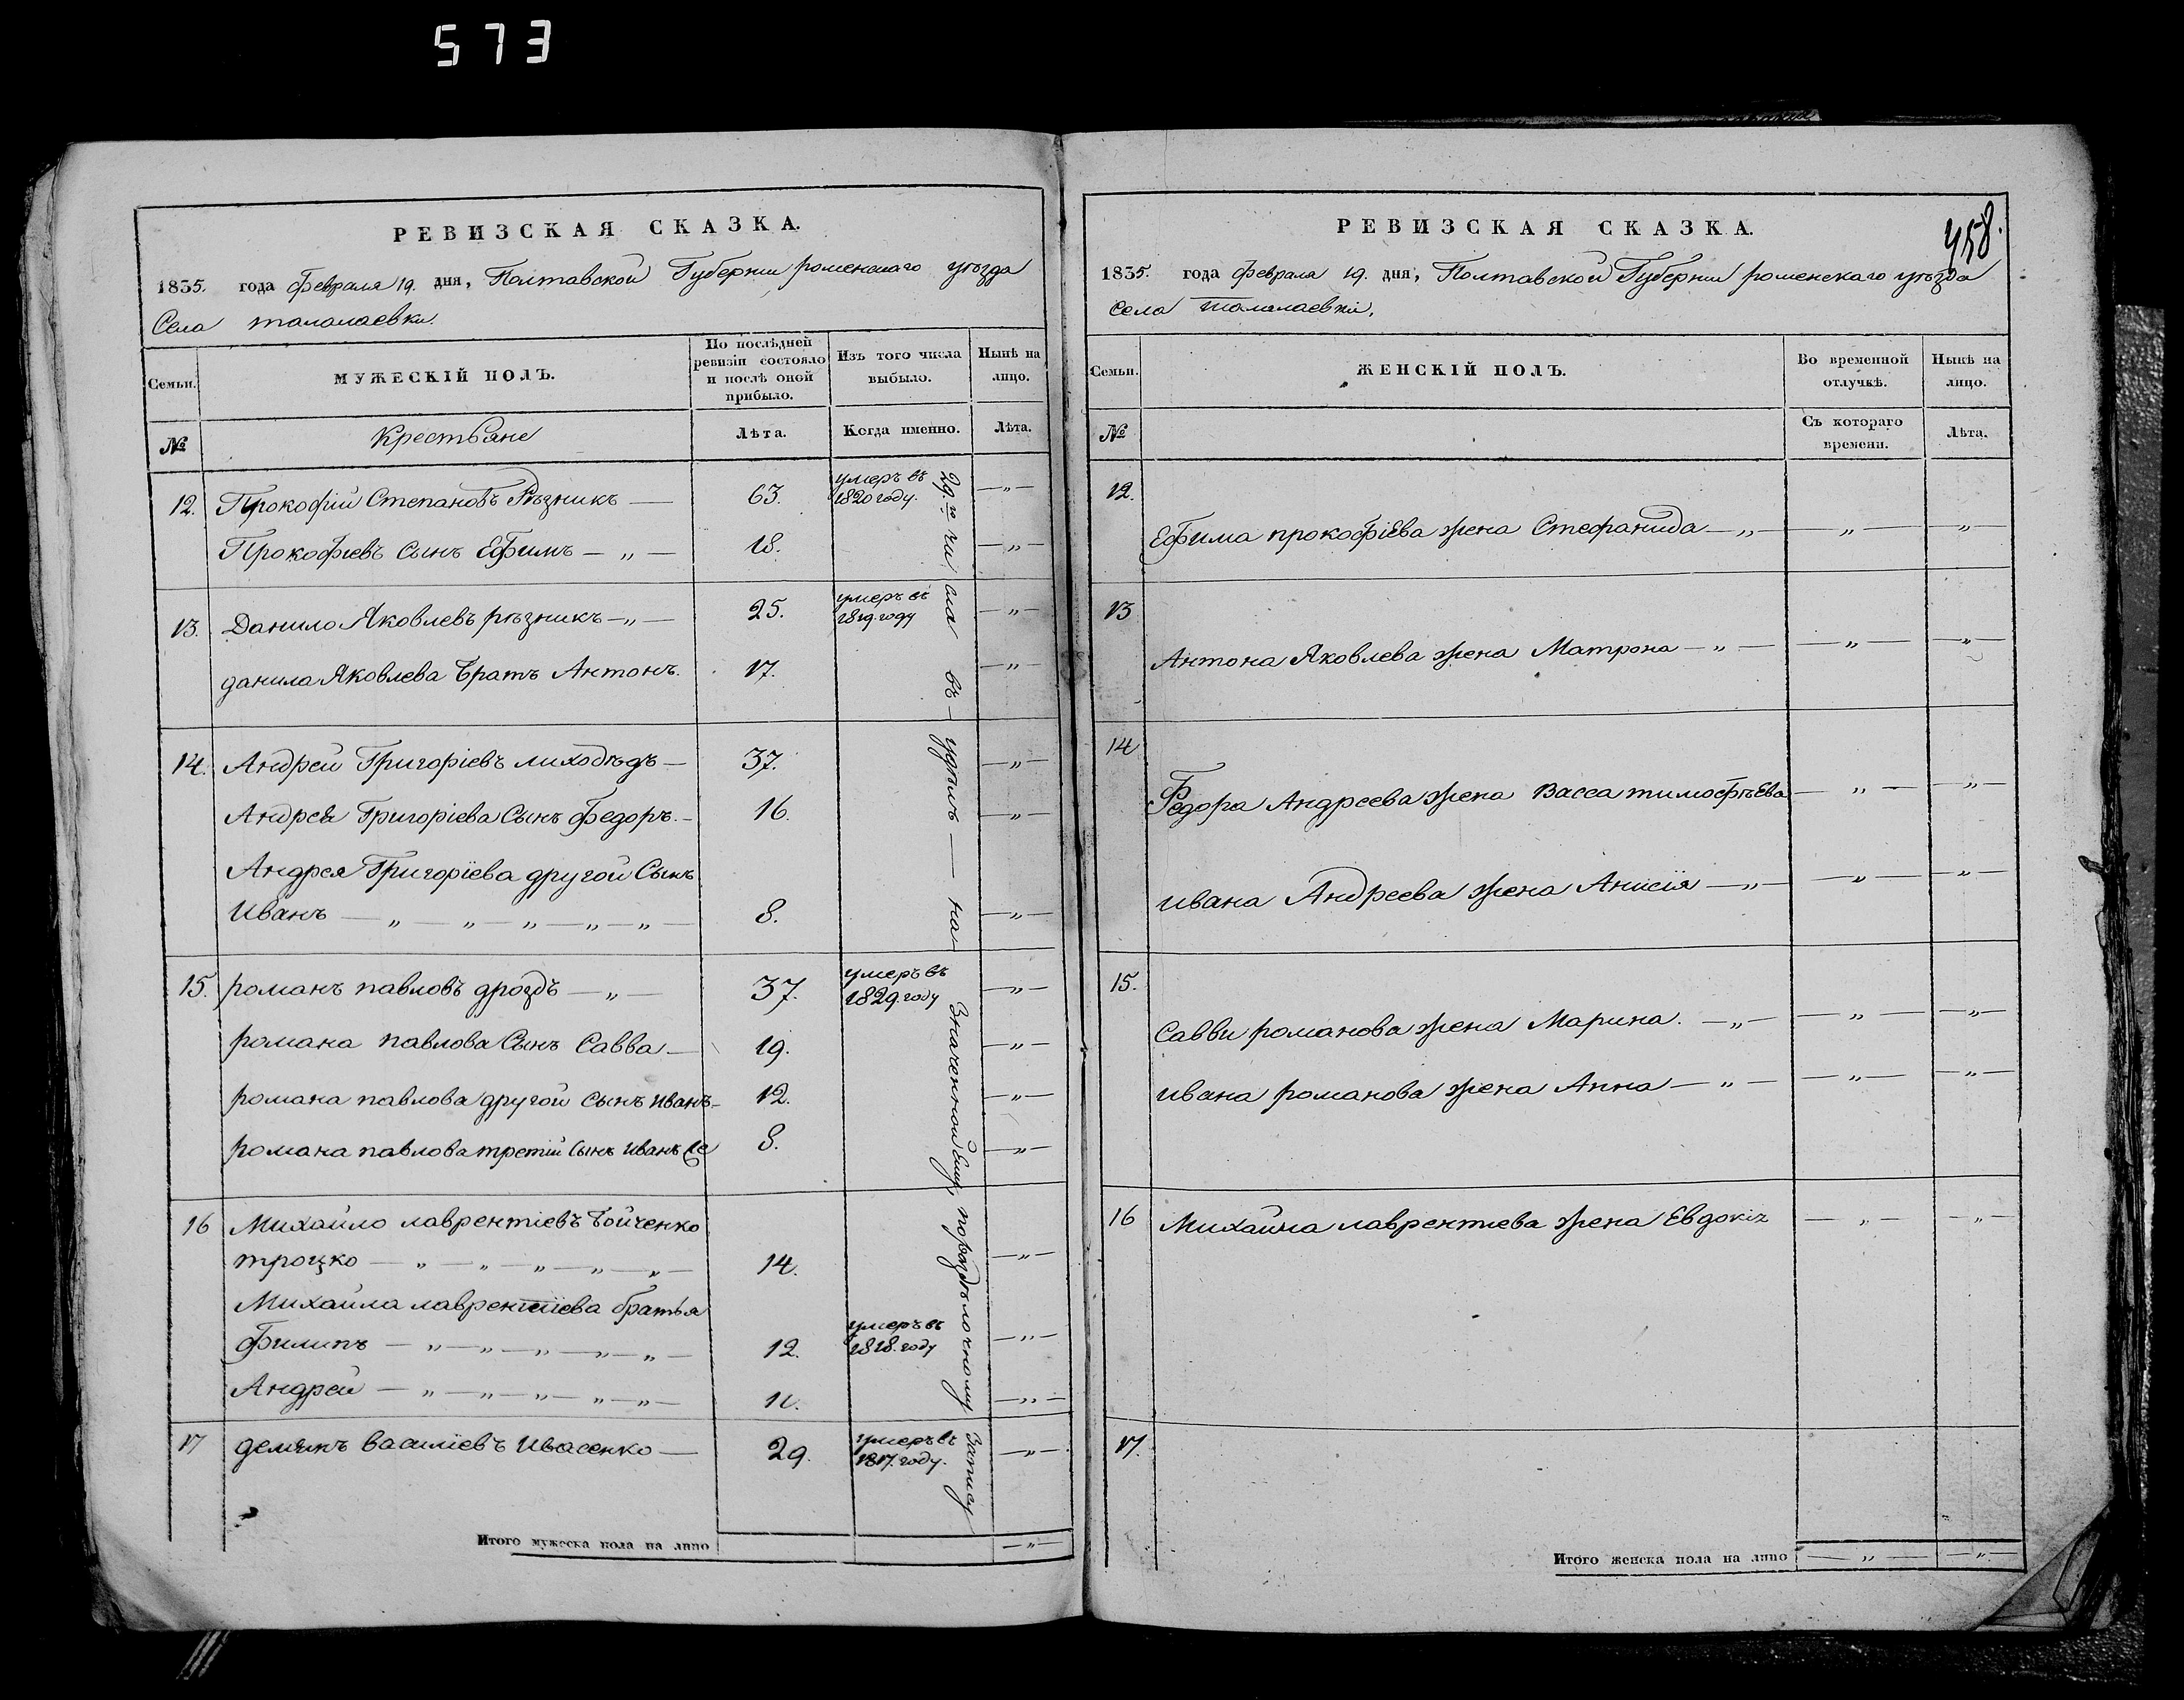 573
РЕВИЗСКАЯ СКАЗКА.
1835. года февраля 19. дня, Полтавской Губернии роменскаго уѣзда
Села талалаевки.
Семьи.
МУЖЕСКІЙ ПОЛЪ.
По послѣдней ревизіи состояло и послѣ оной прибыло.
Изъ того числа выбыло.
Нынѣ на лицо.
№
Крестьяне
Лѣта.
Когда именно.
Лѣта.
12. Прокофій Степановъ Рѣзникъ — 63. умеръ въ 1820 году. — „ —
Прокофіевъ Сынъ Ефимъ — „ — 18. — „ —
13. Данило Яковлевъ рѣзникъ — „ — 25. умеръ въ 1819. году — „ —
данила Яковлева братъ Антонъ. 17. — „ —
14. Андрей Григоріевъ лиходѣдъ — 37. — „ —
Андрея Григоріева Сынъ федоръ. — 16. — „ —
Андрея Григоріева другой Сынъ
Иванъ — „ — „ — „ — „ — „ — 8. — „ —
15. романъ павловъ дроздъ — „ — 37. умеръ въ 1829. году — „ —
романа павлова Сынъ Савва — 19. — „ —
романа павлова другой сынъ иванъ — 12. — „ —
романа павлова третій Сынъ иванъ 8. — „ —
16 Михайло лаврентіевъ бойченко
троцко — „ — „ — „ — „ — „ — 14. — „ —
Михайла лаврентіева братья
филипъ — „ — „ — „ — „ — „ — 12. умеръ въ 1818. году — „ —
Андрей — „ — „ — „ — „ — „ — 11. — „ —
17 демянъ василіевъ Ивасенко — 29. умеръ въ 1817. году. — „ —
29.го числа въ — удѣлъ — на — значенной Ему, пораздѣлочному Запису
Итого мужеска пола на лицо — „ —
РЕВИЗСКАЯ СКАЗКА.
458.
1835. года февраля 19. дня, Полтавской Губернии роменскаго уѣзда
села талалаевки,
Семьи.
ЖЕНСКІЙ ПОЛЪ.
Во временной отлучкѣ.
Нынѣ на лицо.
№
Съ котораго времени.
Лѣта.
12.
Ефима прокофіева жена Стефанида — „ — „ — „
13
Антона Яковлева жена Матрона — „ — — „ — — „ —
14
Федора Андреева жена Васса тимофѣева — „ — — „ —
ивана Андреева жена Анисія — „ — — „ — — „ —
15.
Савви романова жена Марина. — „ — — „ — — „ —
ивана романова жена Анна — „ — — „ — — „ —
16 Михайла лаврентиева жена Евдокія — „ — — „ —
17.
Итого женска пола на лицо — „ — — „ —